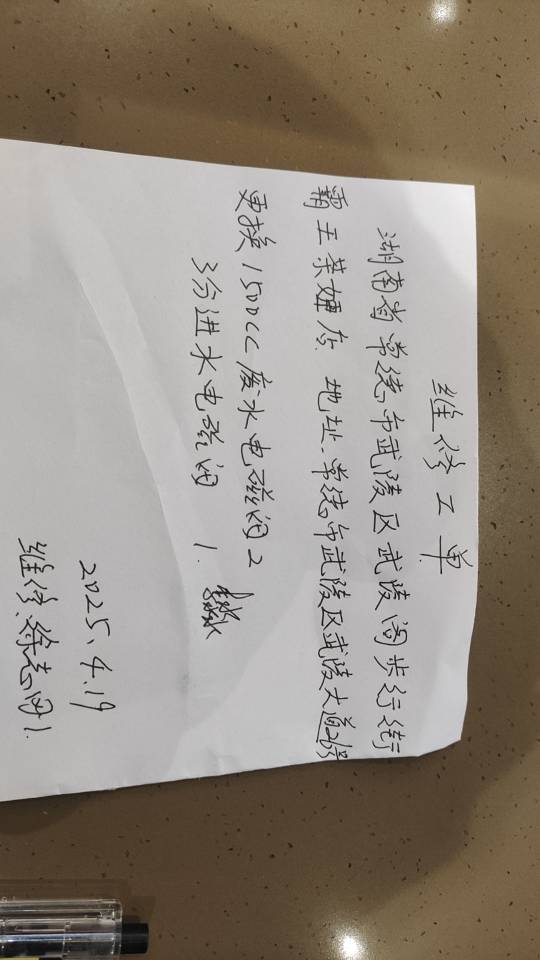 维修工单
湖南省常德市武陵区武陵阁步行街
霸王茶姬店 地址.常德市武陵区武陵大道2号
更换1500CC废水电磁阀2
3分进水电磁阀 1.
2025.4.19
维修.徐志刚1.